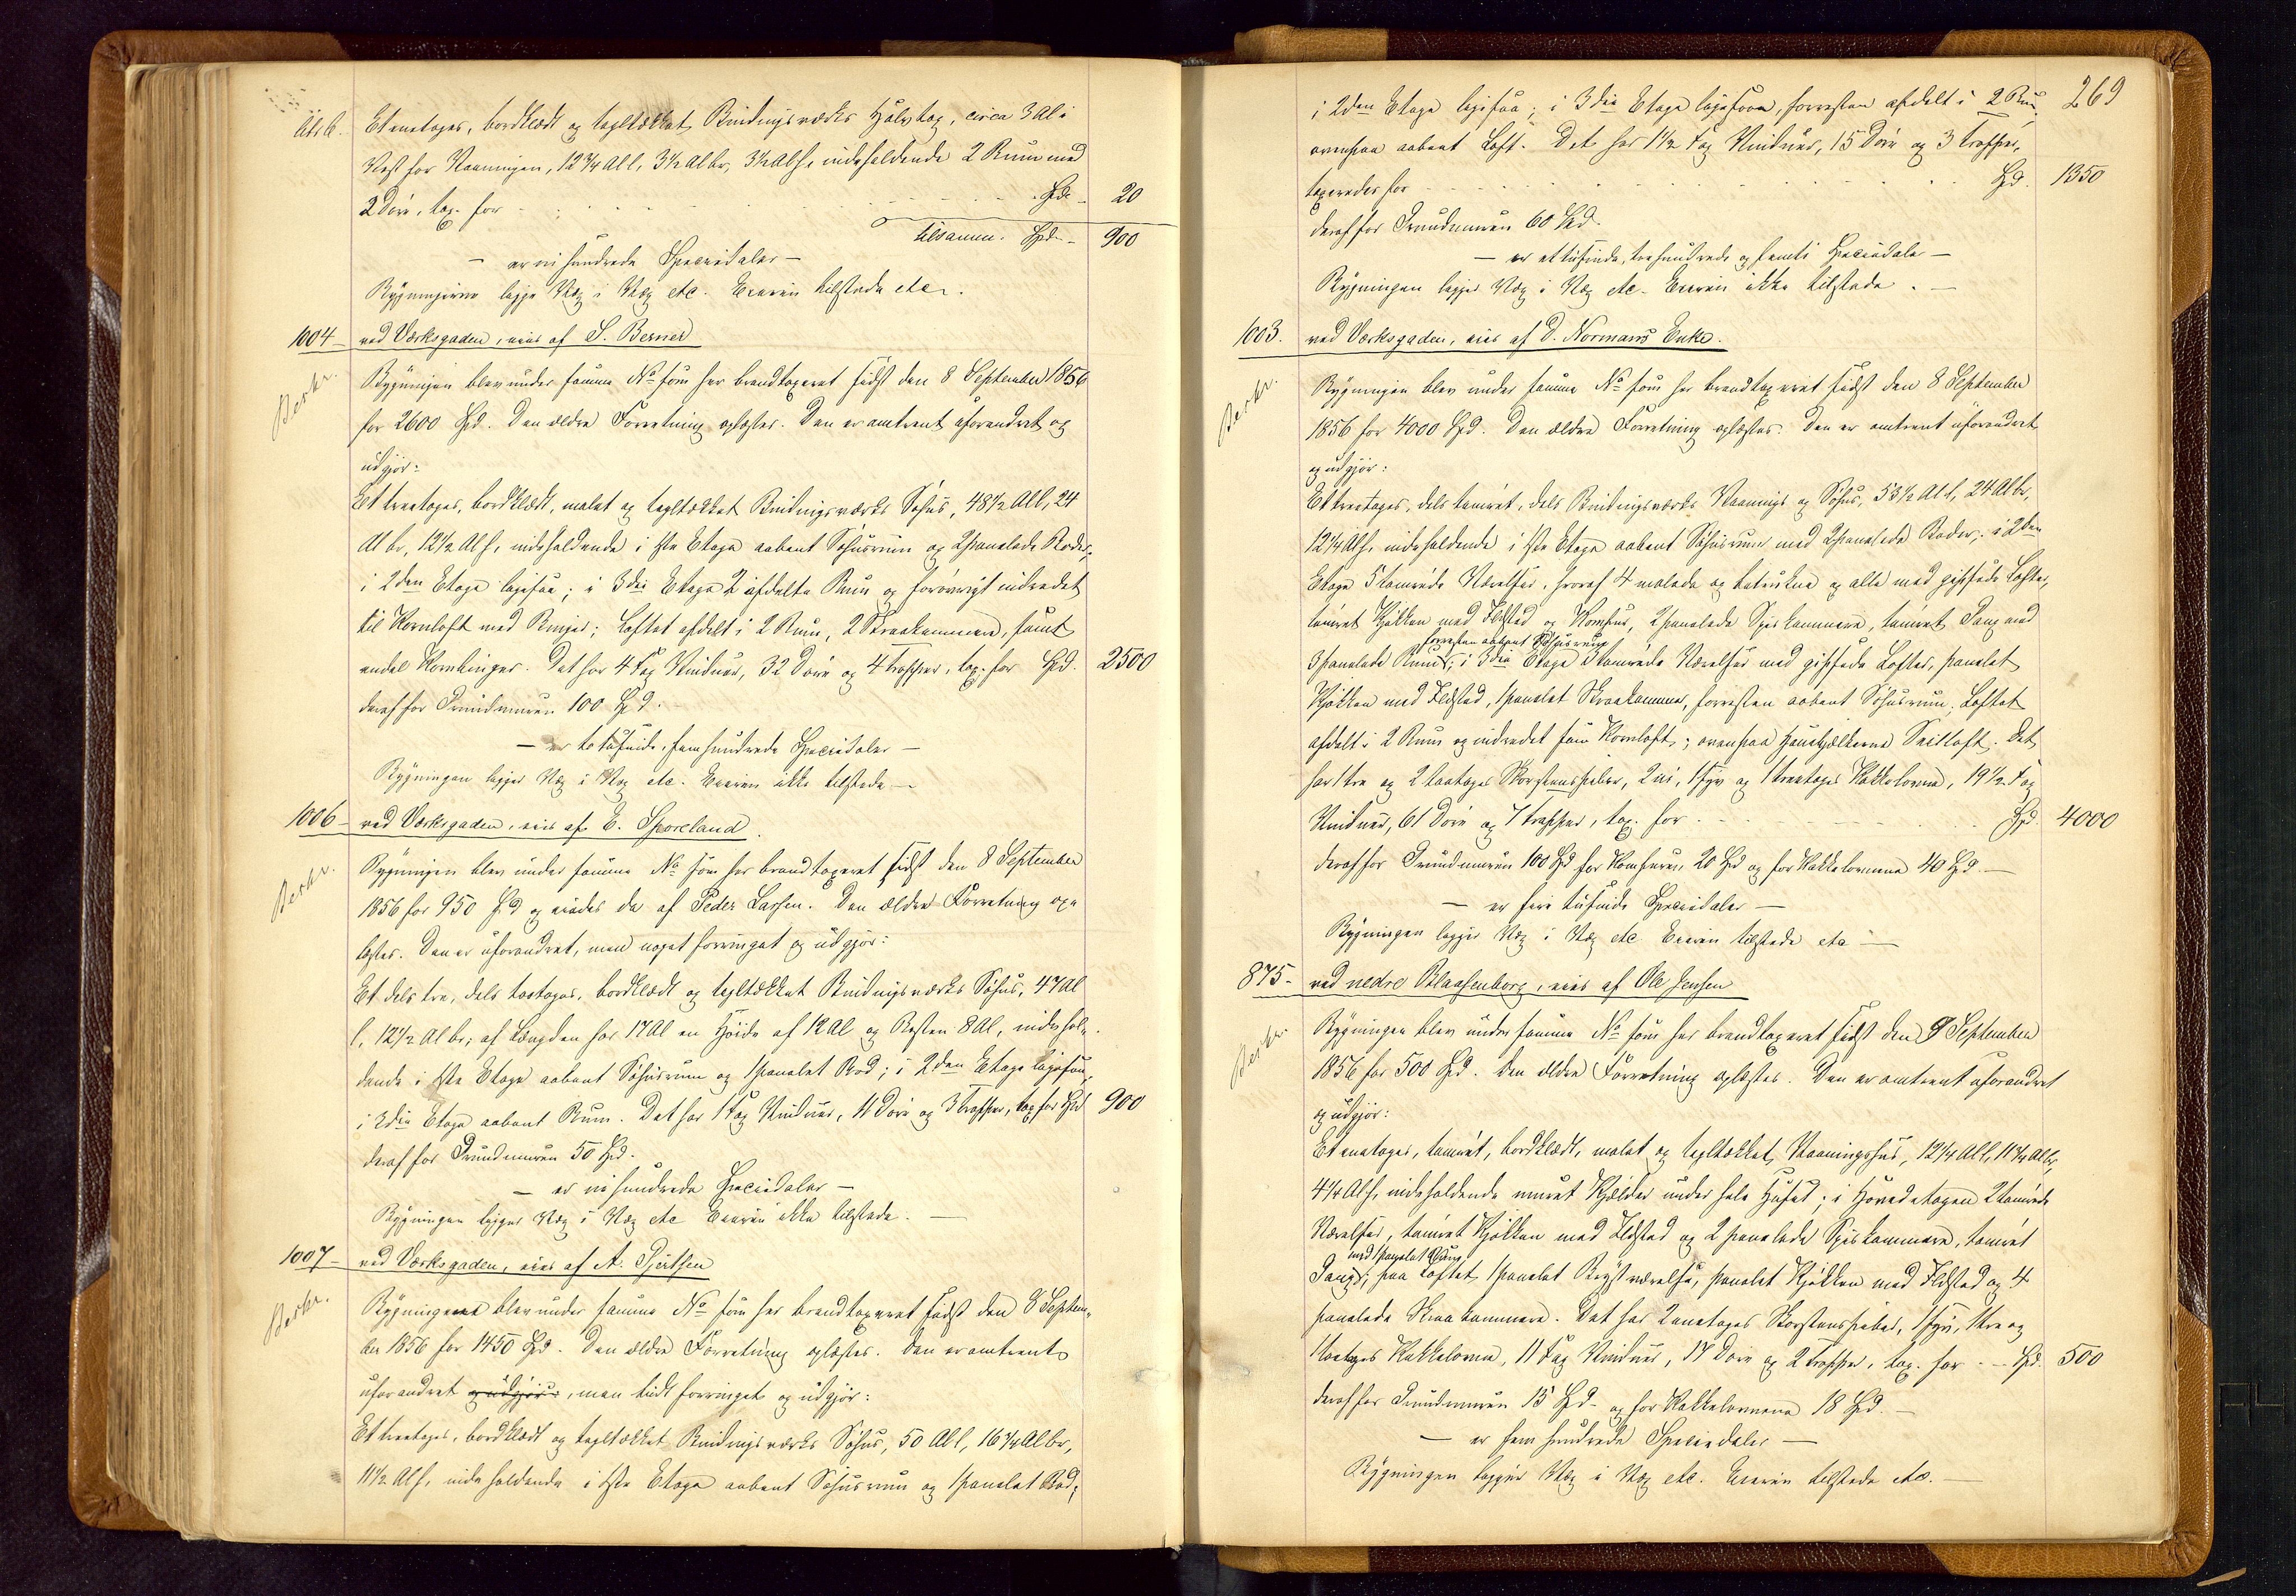 Litr b. Et enetages, bordklædt og tegltækket Bindingsværks Halvtag, circa 3 Al i
Vest for Vaaningen, 12¾ Al l, 3½ Al br, 3½ Al h, indeholdende 2 Rum med
2 Döre, tax. for Spd. 20
tilsamm. Spd. 900
— er ni hundrede Speciedaler —
Bygningerne ligge Væg i Væg etc. Eieren tilstede etc.
1004 – ved Værksgaden, eies af S. Berner
Berkr.
Bygningen blev under samme No som her brandtaxeret sidst den 8 September 1856
for 2600 Spd. Den ældre Forretning oplæstes. Den er omtrent uforandret og
udgjör:
Et treetages, bordklædt, malet og tegltækket Bindingsværks Söhus, 48½ Al l, 24
Al br, 12½ Al h, indeholdende i 1ste Etage aabent Söhusrum og 2 panelede Boder;
i 2den Etage ligesaa; i 3die Etage 2 afdelte Rum og forövrigt indredet
til Kornloft med Binger; Loftet afdelt i 2 Rum, 2 Skraakammere, samt
endel Kornbinger. Det har 4 Fag Vinduer, 32 Döre og 4 Trapper, tax. for Spd. 2500
deraf for Grundmuren 100 Spd.
— er to tusinde, fem hundrede Speciedaler —
Bygningen ligger Væg i Væg etc. Eieren ikke tilstede —
1006 – ved Værksgaden, eies af E. Sporeland.
Berkr.
Bygningen blev under samme No som her brandtaxeret sidst den 8 September
1856 for 950 Spd og eiedes da af Peder Larsen. Den ældre Forretning op-
læstes. Den er uforandret, men noget forringet og udgjör:
Et dels tre, dels toetages, bordklædt og tegltækket Bindingsværks Söhus, 47 Al
l, 12½ Al br; af Længden har 17 Al en Höide af 12 Al og Resten 8 Al, indehol-
dende i 1ste Etage aabent Söhusrum og 1 panelet Bod; i 2den Etage ligesaa;
i 3die Etage aabent Rum. Det har 1 Fag Vinduer, 11 Döre og 3 Trapper, tax for Spd 900
deraf for Grundmuren 50 Spd.
— er ni hundrede Speciedaler —
Bygningen ligger Væg i Væg etc Eieren ikke tilstede. —
1007 – ved Værksgaden, eies af A. Gjertsen
Berkr.
Bygningen blev under samme No som her brandtaxeret sidst den 8 Septem-
ber 1856 for 1450 Spd. Den ældre Forretning oplæstes. Den er omtrent
uforandret og udgjör:, men lidt forringet og udgjör:
Et treetages, bordklædt og tegltækket Bindingsværks Söhus, 50 Al l, 16¼ Al br,
11½ Al h, indeholdende i 1ste Etage aabent Söhusrum og 1 panelet Bod;
269
i 2den Etage ligesaa; i 3die Etage, forresten afdelt i 2 Rum,
ovenpaa aabent Loft. Det har 1½ Fag Vinduer, 15 Döre og 3 Trapper,
taxeredes for Spd. 1350
deraf for Grundmuren 60 Spd.
— er et tusinde, trehundrede og femti Speciedaler —
Bygningen ligger Væg i Væg etc. Eieren ikke tilstede. —
1003. ved Værksgaden, eies af D. Normans Enke.
Berkr.
Bygningen blev under samme No som her brandtaxeret sidst den 8 September
1856 for 4000 Spd. Den ældre Forretning oplæstes. Den er omtrent uforandret
og udgjör:
Et treetages, dels tömret, dels Bindingsværks Vaanings og Söhus, 53½ Al l, 24 Al br,
12¼ Al h, indeholdende i 1ste Etage aabent Söhusrum med 2 panelede Boder; i 2den
Etage 5 tömrede Værelser, hvoraf 4 malede og betrukne og alle med gipsede Lofter,
tömret Kjökken med Ildsted og Komfur, 2 panelede Spiskammere, tömret Gang med
forresten aabent Söhusrum
3 panelede Rum; i 3die Etage 3 tömrede Værelser med gipsede Lofter, panelet
Kjökken med Ildsted, 1 panelet Skraakammer, forresten aabent Söhusrum; Loftet
afdelt i 2 Rum og indredet som Kornloft; ovenpaa Hanebjælkerne Seilloft. Det
har 1 tre og 2 toetages Skorstenspiber, 2 ni, 1 fyr og 1 treetages Kakkelovne, 19½ Fag
Vinduer, 61 Döre og 7 Trapper, tax. for Spd. 4000
deraf for Grundmuren 100 Spd for Komfuren 20 Spd og for Kakkelovnene 40 Spd. —
— er fire tusinde Speciedaler —
Bygningen ligger Væg i Væg etc Eieren tilstede etc —
875 – ved nedre Blaasenborg, eies af Ole Jensen
Berkr.
Bygningen blev under samme No som her brandtaxeret sidst den 9 September
1856 for 500 Spd. Den ældre Forretning oplæstes. Den er omtrent uforandret
og udgjör:
Et enetages, tömret, bordklædt, malet og tegltækket Vaaningshus, 12¼ Al l, 11¼ Al br,
4¼ Al h, indeholdende muret Kjælder under hele Huset; i Hovedetagen 2 tömrede
Værelser, tömret Kjökken med Ildsted og 2 panelede Spiskammere, tömret
med 1 panelet Rum
Gang; paa Loftet 1 panelet Kvistværelse, panelet Kjökken med Ildsted og 4
panelede Skraakammere. Det har 2 enetages Skorstenspiber, 1 fyr, 1 tre og
1 toetages Kakkelovne, 11 Fag Vinduer, 17 Döre og 2 Trapper, tax. for Spd. 500
deraf for Grundmuren 15 Spd. og for Kakkelovnene 18 Spd. —
— er fem hundrede Speciedaler —
Bygningen ligger Væg i Væg etc. Eieren tilstede etc. —